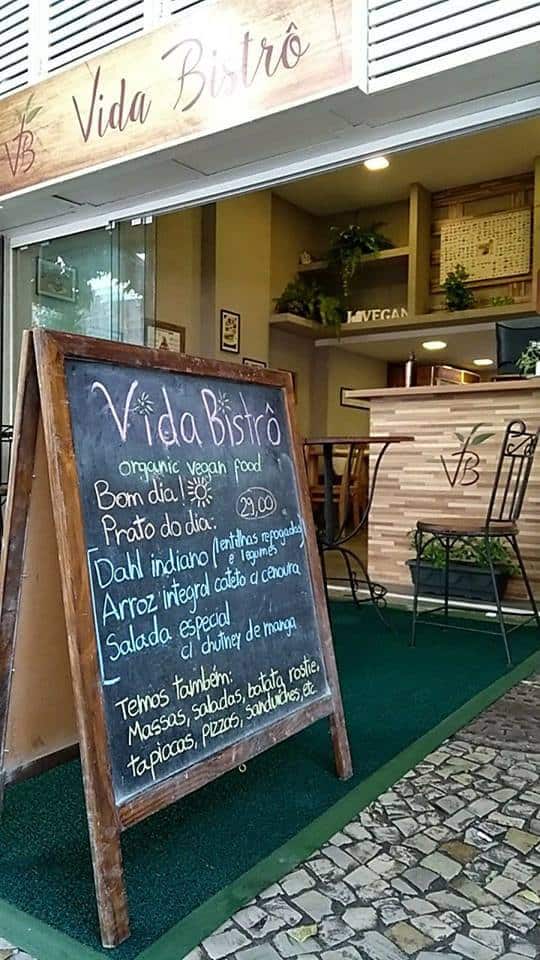 VB Vida Bistrô
I♥VEGAN
Vida Bistrô
organic vegan food
Bom dia!
Prato do dia: 29,00
Dahl indiano (lentilhas refogadas
e legumes
Arroz integral cateto c/ cenoura
Salada especial
c/ chutney de manga
Temos também:
Massas, saladas, batata rostie,
tapiocas, pizzas, sanduíches, etc
VB